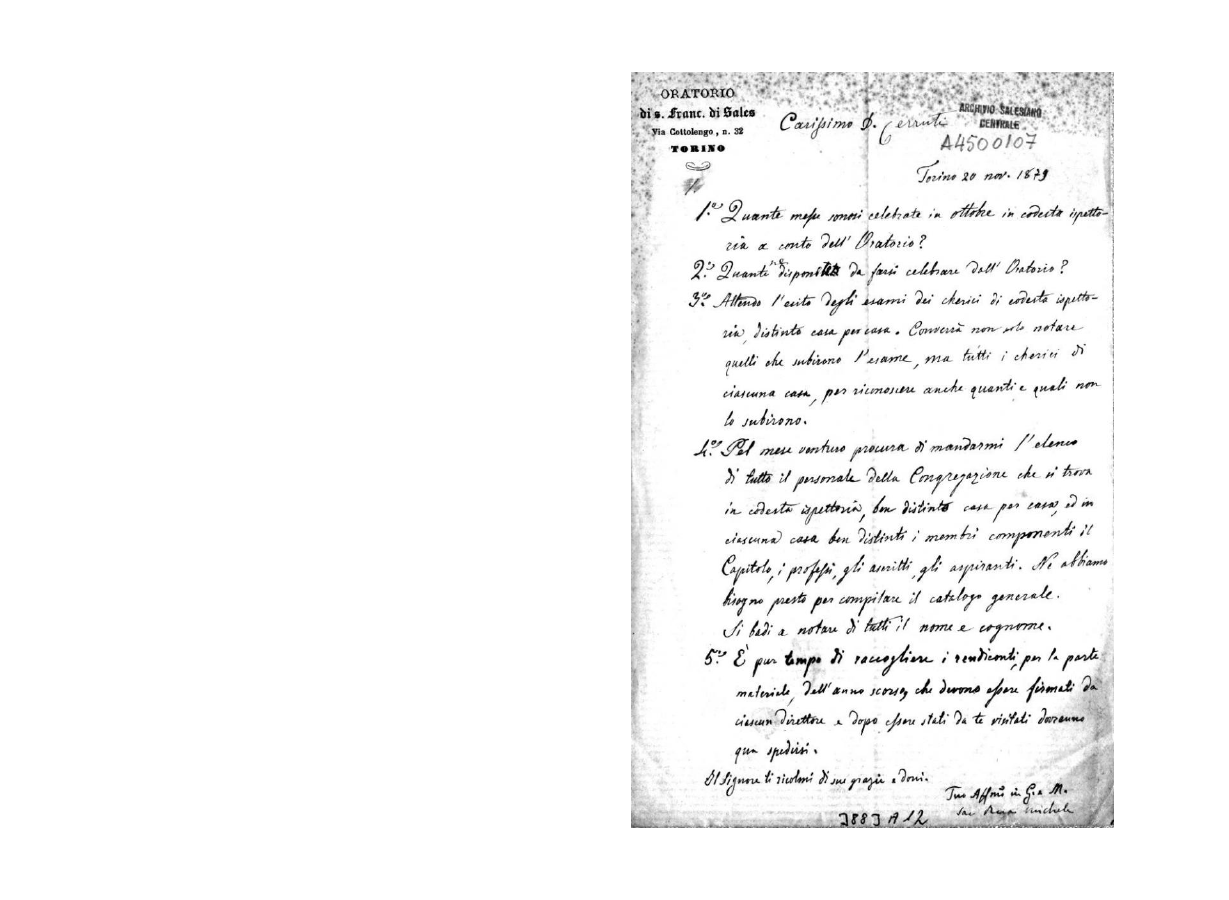 ORATORIO
di s. Franc. di Sales
Via Cottolengo, n. 32
TORINO
ARCHIVIO SALESIANO
CENTRALE
A4500107
Carissimo D. Cerruti
Torino 20 nov. 1879
1.º Quante messe sonosi celebrate in ottobre in codesta ispetto-
ria a conto dell' Oratorio?
2.º Quante da farsi celebrare dall' Oratorio?
3.º Attendo l'esito degli esami dei cherici di codesta ispetto-
ria, distinto casa per casa. Converrà non solo notare
quelli che subirono l'esame, ma tutti i cherici di
ciascuna casa, per riconoscere anche quanti e quali non
lo subirono.
4.º Pel mese venturo procura di mandarmi l'elenco
di tutto il personale della Congregazione che si trova
in codesta ispettoria, ben distinto casa per casa, ed in
ciascuna casa ben distinti i membri componenti il
Capitolo, i professi, gli ascritti, gli aspiranti. Ne abbiamo
bisogno presto per compilare il catalogo generale.
Si badi a notare di tutti il nome e cognome.
5.º È pur tempo di raccogliere i rendiconti, per la parte
materiale, dell'anno scorso, che devono essere firmati da
ciascun direttore e dopo essere stati da te visitati dovranno
qua spedirsi.
Il Signore ti ricolmi di sue grazie e doni.
Tuo Affmo in G. e M.
Sac. Rua Michele
3883 A 12